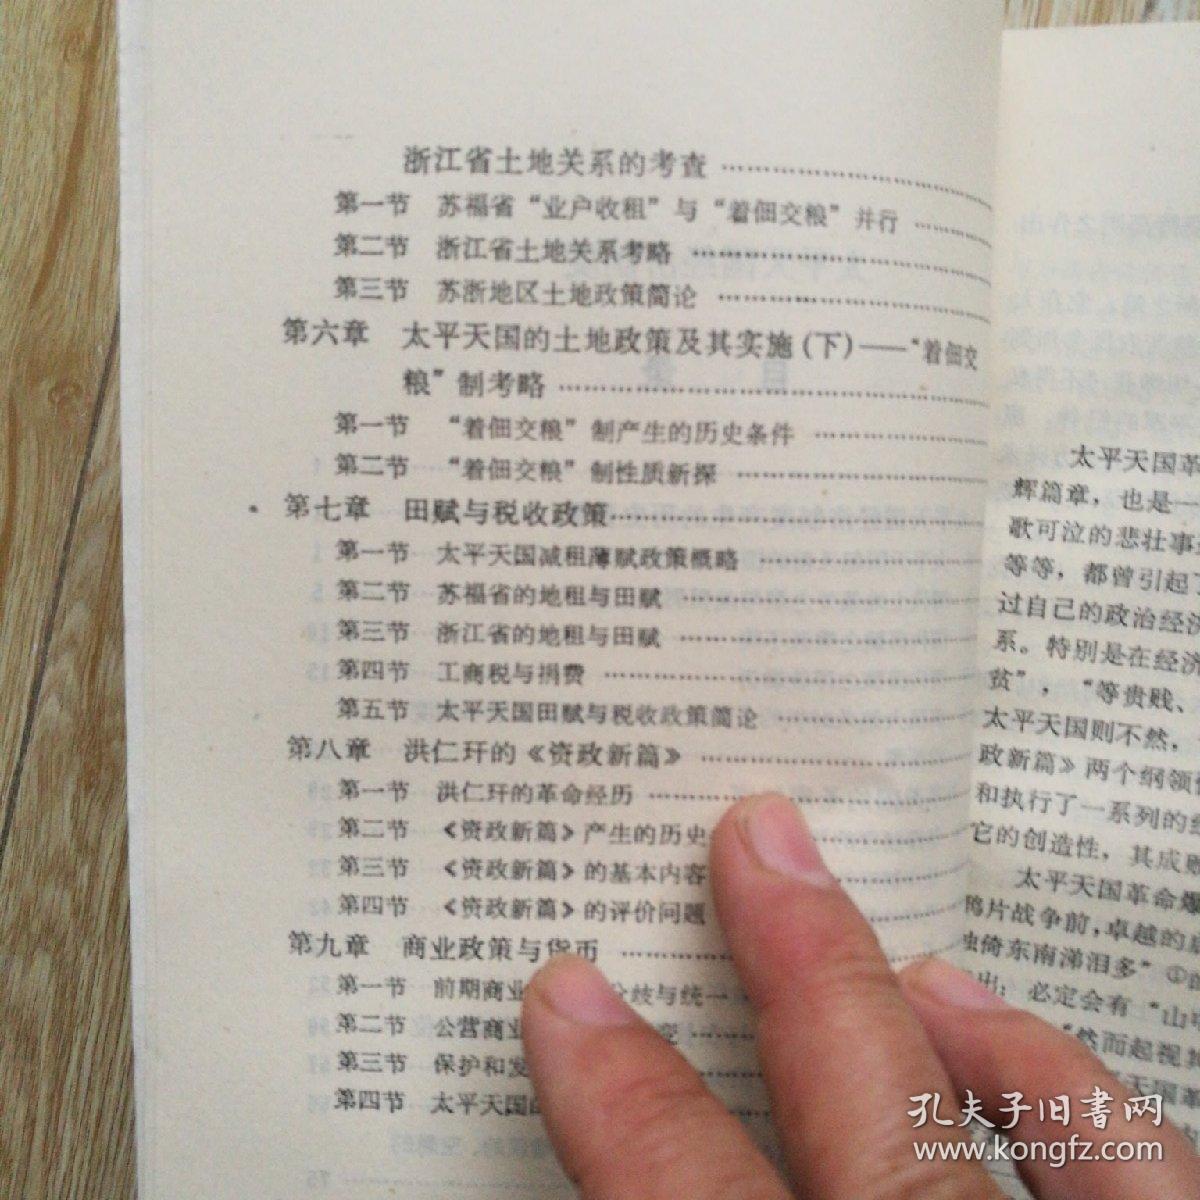 浙江省土地关系的考查 ……………………
第一节 苏福省“业户收租”与“着佃交粮”并行 ………
第二节 浙江省土地关系考略 ……………………
第三节 苏浙地区土地政策简论 ……………………
第六章 太平天国的土地政策及其实施(下)——“着佃交
粮”制考略 ……………………
第一节 “着佃交粮”制产生的历史条件 ……………
第二节 “着佃交粮”制性质新探 ………………
第七章 田赋与税收政策……………………
第一节 太平天国减租薄赋政策概略 ………………
第二节 苏福省的地租与田赋 ……………………
第三节 浙江省的地租与田赋 ……………………
第四节 工商税与捐费 ……………………
第五节 太平天国田赋与税收政策简论 ……………
第八章 洪仁玕的《资政新篇》 ………………
第一节 洪仁玕的革命经历 ……………………
第二节 《资政新篇》产生的历史
第三节 《资政新篇》的基本内容
第四节 《资政新篇》的评价问题
第九章 商业政策与货币 ……………………
第一节 前期商业 分歧与统一
第二节 公营商业 变 ………
第三节 保护和发
第四节 太平天国的
75
太平天国革
辉篇章，也是一
歌可泣的悲壮事
等等，都曾引起
过自己的政治经济
系。特别是在经济
贫”，“等贵贱、
太平天国则不然，
政新篇》两个纲领
和执行了一系列的
它的创造性，其成败
太平天国革命爆
鸦片战争前，卓越的
独倚东南涕泪多”①
出：必定会有“山中
“然而起视其
天国革
孔夫子旧书网
www.kongfz.com